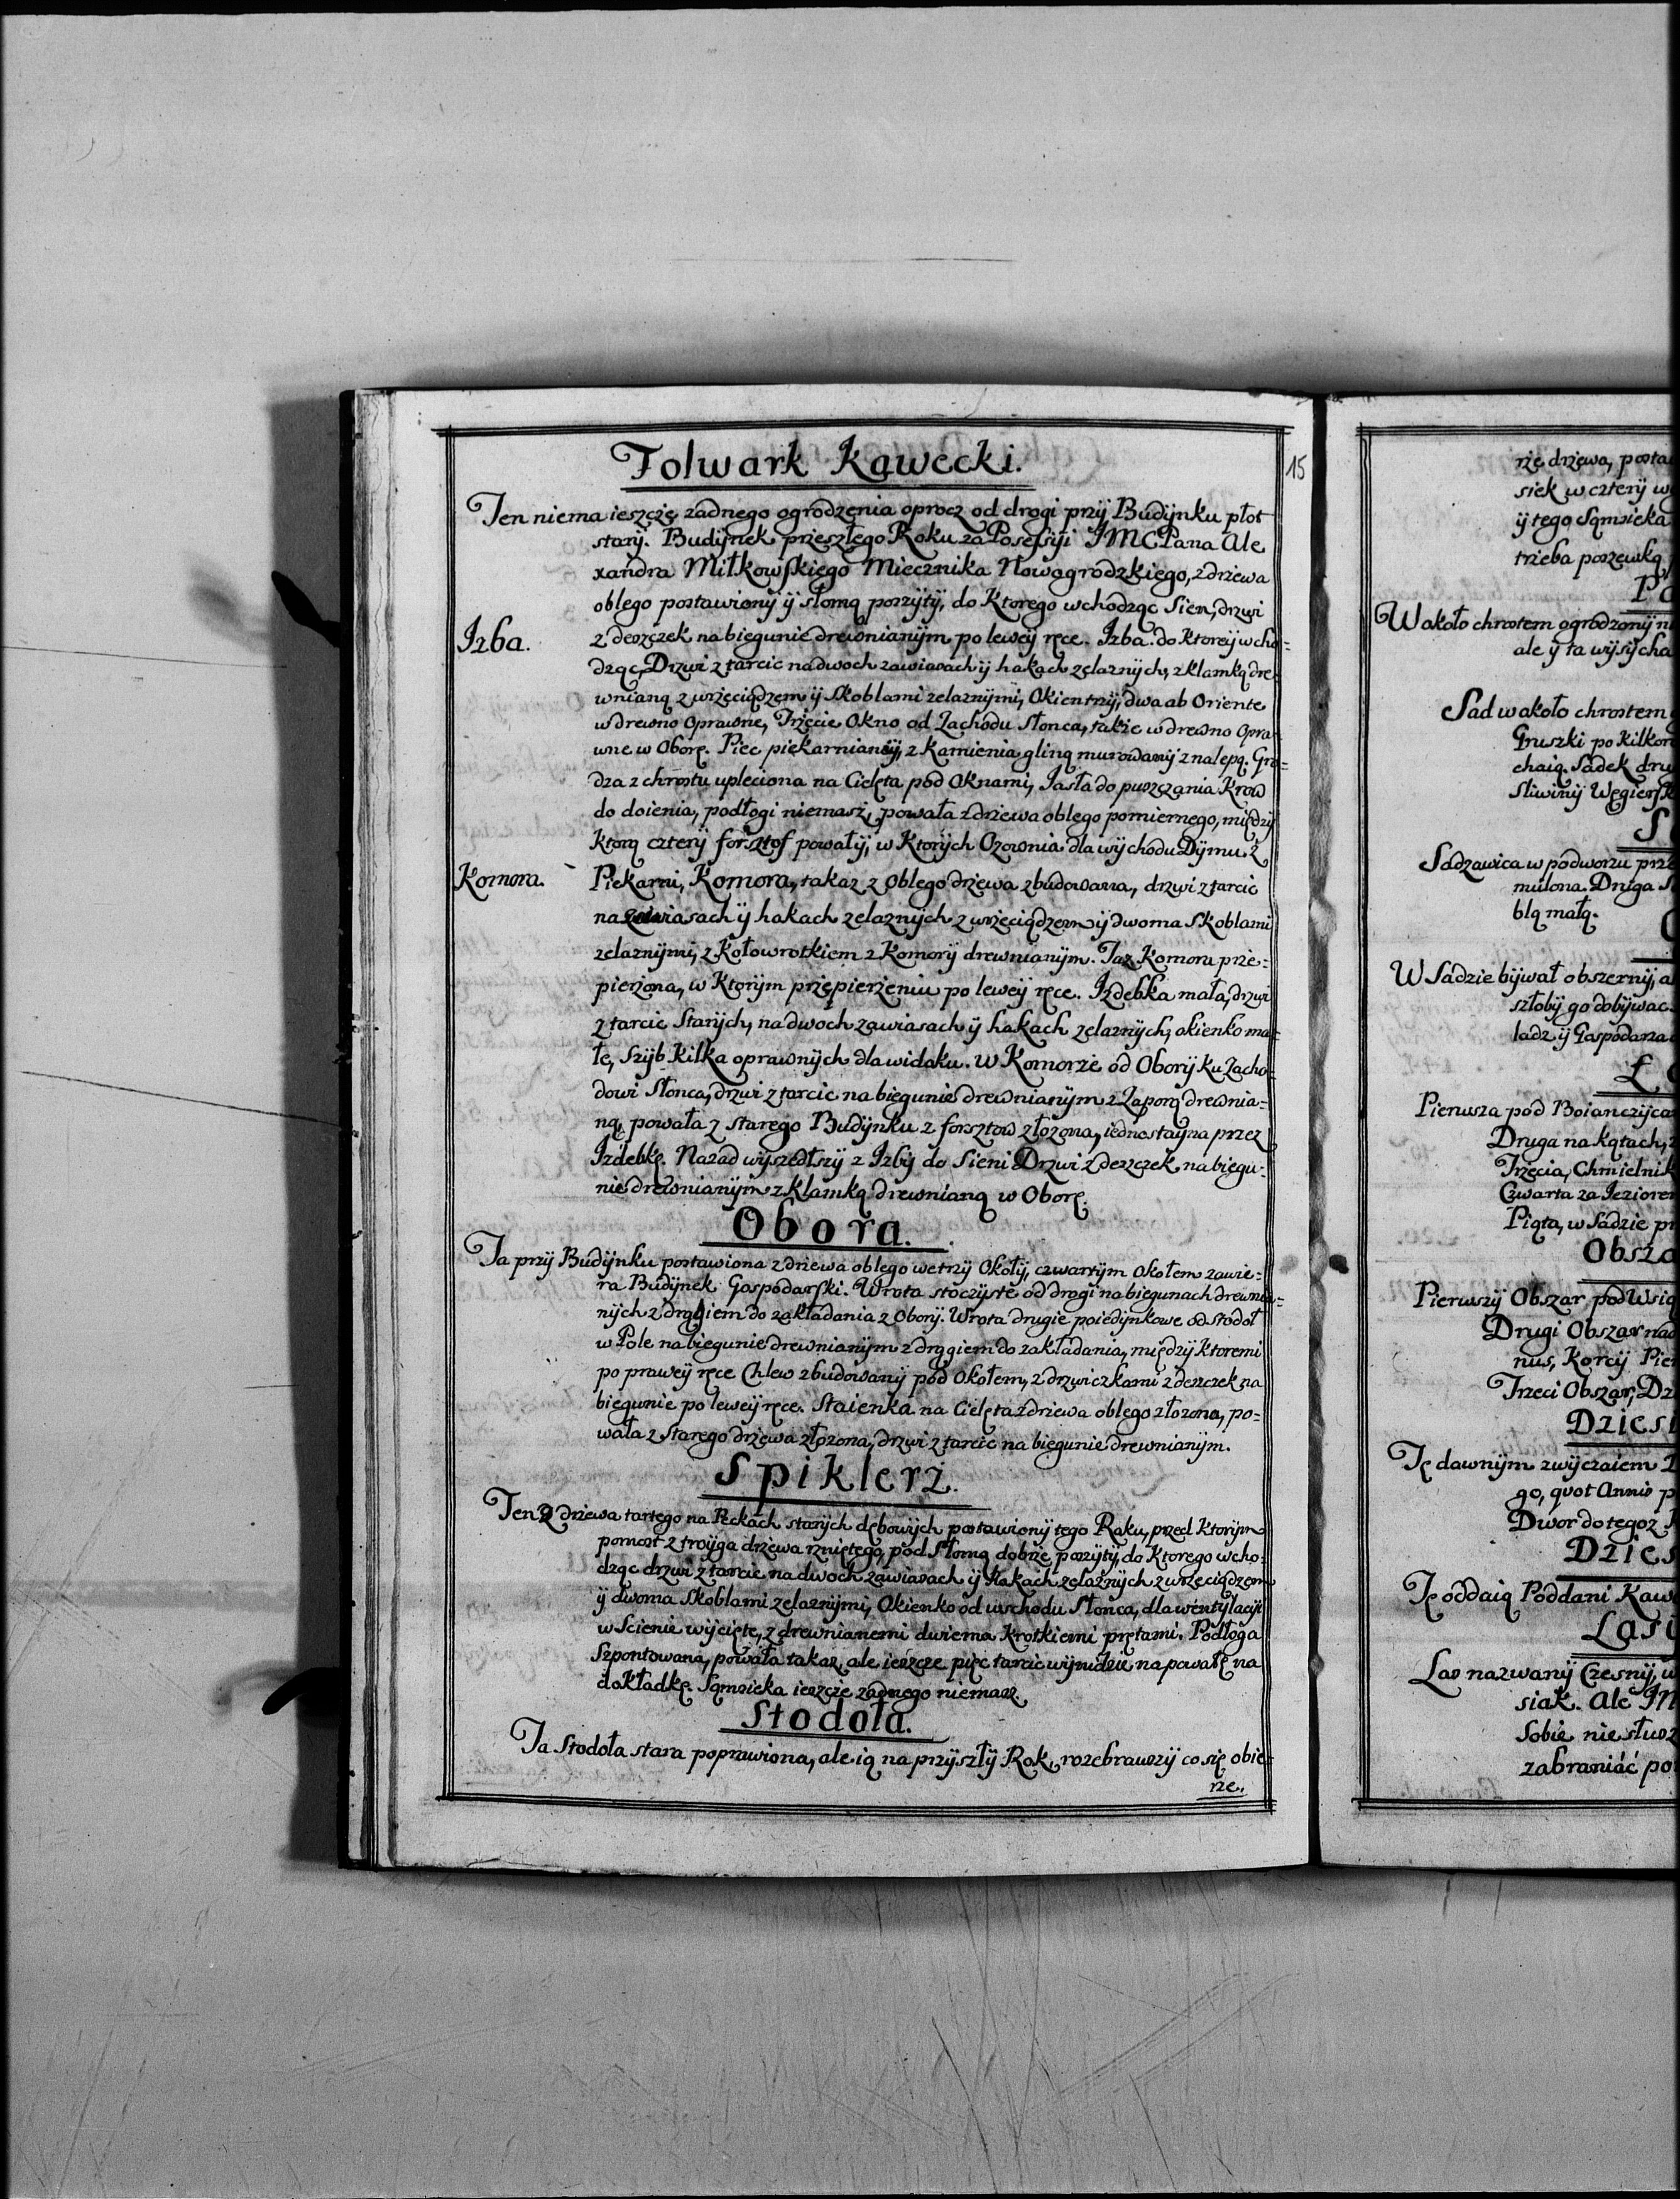 Folwark Kąwecki.
15
Ten niema ieszcze zadnego ogrodzenia oprocz od drogi przÿ Budÿnku płot
starÿ. Budÿnek przeszłego Roku za Posefsÿi IMC Pana Ale
xandra Miłkowskiego Miecznika Nowogrodzkiego, z drzewa
oblego postawionÿ ÿ słomą poszÿtÿ, do Ktorego wchodząc Sien, drzwi
Izba.
z deszczek na biegunie drewnianÿm po lewey ręce. Izba. do ktoreÿ wcho=
dząc, Drzwi z tarcic na dwoch zawiasach ÿ hakach zelaznÿch, z klamką dre
wnianą z wrzeciądzem ÿ Skoblami zelaznÿmi, Okien trzÿ, dwa ab Oriente
w drewno oprawne, Trzecie Okno od Zachodu Słonca, także w drewno opra
wne w Oborę. Piec piekarnianÿ, z Kamienia gliną murowanÿ z nalepą. Gro=
dza z chrostu upleciona na Cielęta pod Oknami, Jasła do puszczania Krow
do doienia, podłogi niemasz, powała z drzewa oblego pomiernego, międzÿ
ktorą czterÿ forsztof powałÿ, w Ktorÿch Ozownia dla wÿchodu Dÿmu. z
Komora.
Piekarni, Komora, takaz z oblego drzewa zbudowana, drzwi z tarcic
na zawiasach ÿ hakach zelaznÿch z wrzeciądzem ÿ dwoma Skoblami
zelaznÿmi, z Kołowrotkiem z Komorÿ drewnianÿm. Taz Komora prze=
pierzona, w Ktorÿm przepierzeniu po lewey ręce. Izdebka mała, drzwi
z tarcic Starÿch, na dwoch zawiasach ÿ hakach zelaznÿch, okienko ma=
łe, Szÿb Kilka oprawnÿch dla widoku. W Komorze od Oborÿ Ku Zacho=
dowi Słonca, drzwi z tarcic na biegunie drewnianÿm z Zaporą drewnia=
ną, powała z starego Budÿnku z forsztow złozona, iednostayna przez
Izdebkę. Nazad wÿszedłszÿ z Izbÿ do Sieni Drzwi z deszczek na biegu=
nie drewnianÿm z Klamką drewnianą w Oborę.
Obora.
Ta przÿ Budÿnku postawiona z drzewa oblego we trzÿ Okołÿ, czwartÿm Okołem zawie=
ra Budÿnek Gospodarski. Wrota stoczÿste od drogi na biegunach drewnia=
nÿch z drągiem do zakładania z Oborÿ. Wrota drugie poiedÿnkowe od Stodoł
w Pole na biegunie drewnianÿm z drągiem do zakładania, międzÿ Ktoremi
po prawey ręce Chlew zbudowanÿ pod Okołem, z drzwiczkami z deszczek na
biegunie po lewey ręce. Staienka na Cielęta z drzewa oblego złozona, po=
wała z Starego drzewa złozona, drzwi z tarcic na biegunie drewnianÿm.
Spiklerz.
Ten z drzewa tartego na Peckach starÿch dębowÿch postawionÿ tego Roku, przed Ktorÿm
pomost z troÿga drzewa rzniętego, pod Słomą dobrze poszÿtÿ, do Ktorego wcho=
dząc drzwi z tarcic na dwoch zawiasach ÿ Hakach zelaznÿch z wrzeciądzem
ÿ dwoma Skoblami zelaznÿmi, Okienko od wschodu Słonca, dla wentÿlacÿi
w Scienie wÿcięte, z drewnianemi dwiema Krotkiemi prętami. Podłoga
Szpontowana, powała takaz, ale ieszcze pięc tarcic wÿnidzie na powałę na
dokładkę. Sąmsieka ieszcze zadnego niemasz.
Stodoła.
Ta Stodoła stara poprawiona, ale ią na przÿszłÿ Rok, rozebrawszÿ co się obie=
rze.
rze drzewa, posta
siek w czterÿ
ÿ tego Sąmsieka
trzeba poszewką
W około chrostem ogrodzonÿ
ale ÿ ta wÿsÿcha
Sad w około chrostem
Gruszki po kilkor
chaią. Sadek dru
Sliwinÿ Węgiersk
Sadzawica w podworzu prze
mulona. Druga
blą małą.
W Sadzie bÿwał obszernÿ, a
szłobÿ go dobÿwac
ladz ÿ Gospodarza
Pierwsza pod Boianczÿca
Druga na kątach,
Trzecia, Chmielnik
Czwarta za Iezioren
Piąta, w Sadzie
Obsza
Pierwszÿ Obszar pod Wsią
Drugi Obszar nad
nus, Korcÿ Pie
Trzeci Obszar, Dz
Dziesi
Tę dawnÿm zwÿczaiem
go, quot Annis p
Dwor do tegoz
Dzies
Tę oddaią Poddani Kaw
Lasi
Las nazwanÿ Czesnÿ, w
siak. Ale IM
Sobie nie słusz
zabraniác po